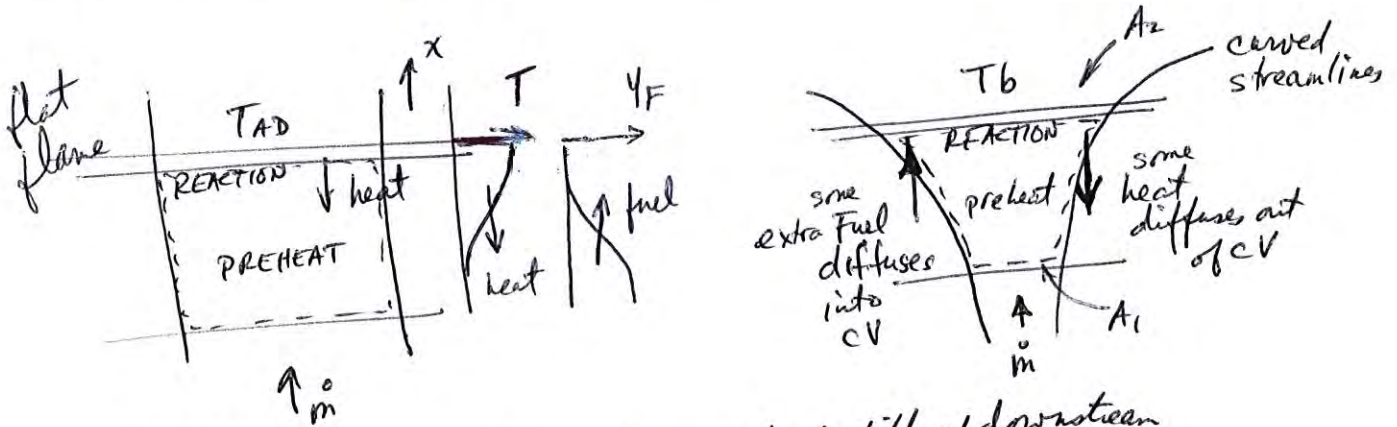 flat
flame
TAD
x
T
YF
REACTION
heat
PREHEAT
heat
fuel
ṁ
Tb
A2
curved
streamlines
REACTION
preheat
some
extra Fuel
diffuses
into
CV
some
heat
diffuses out
of CV
ṁ
A1
downstream